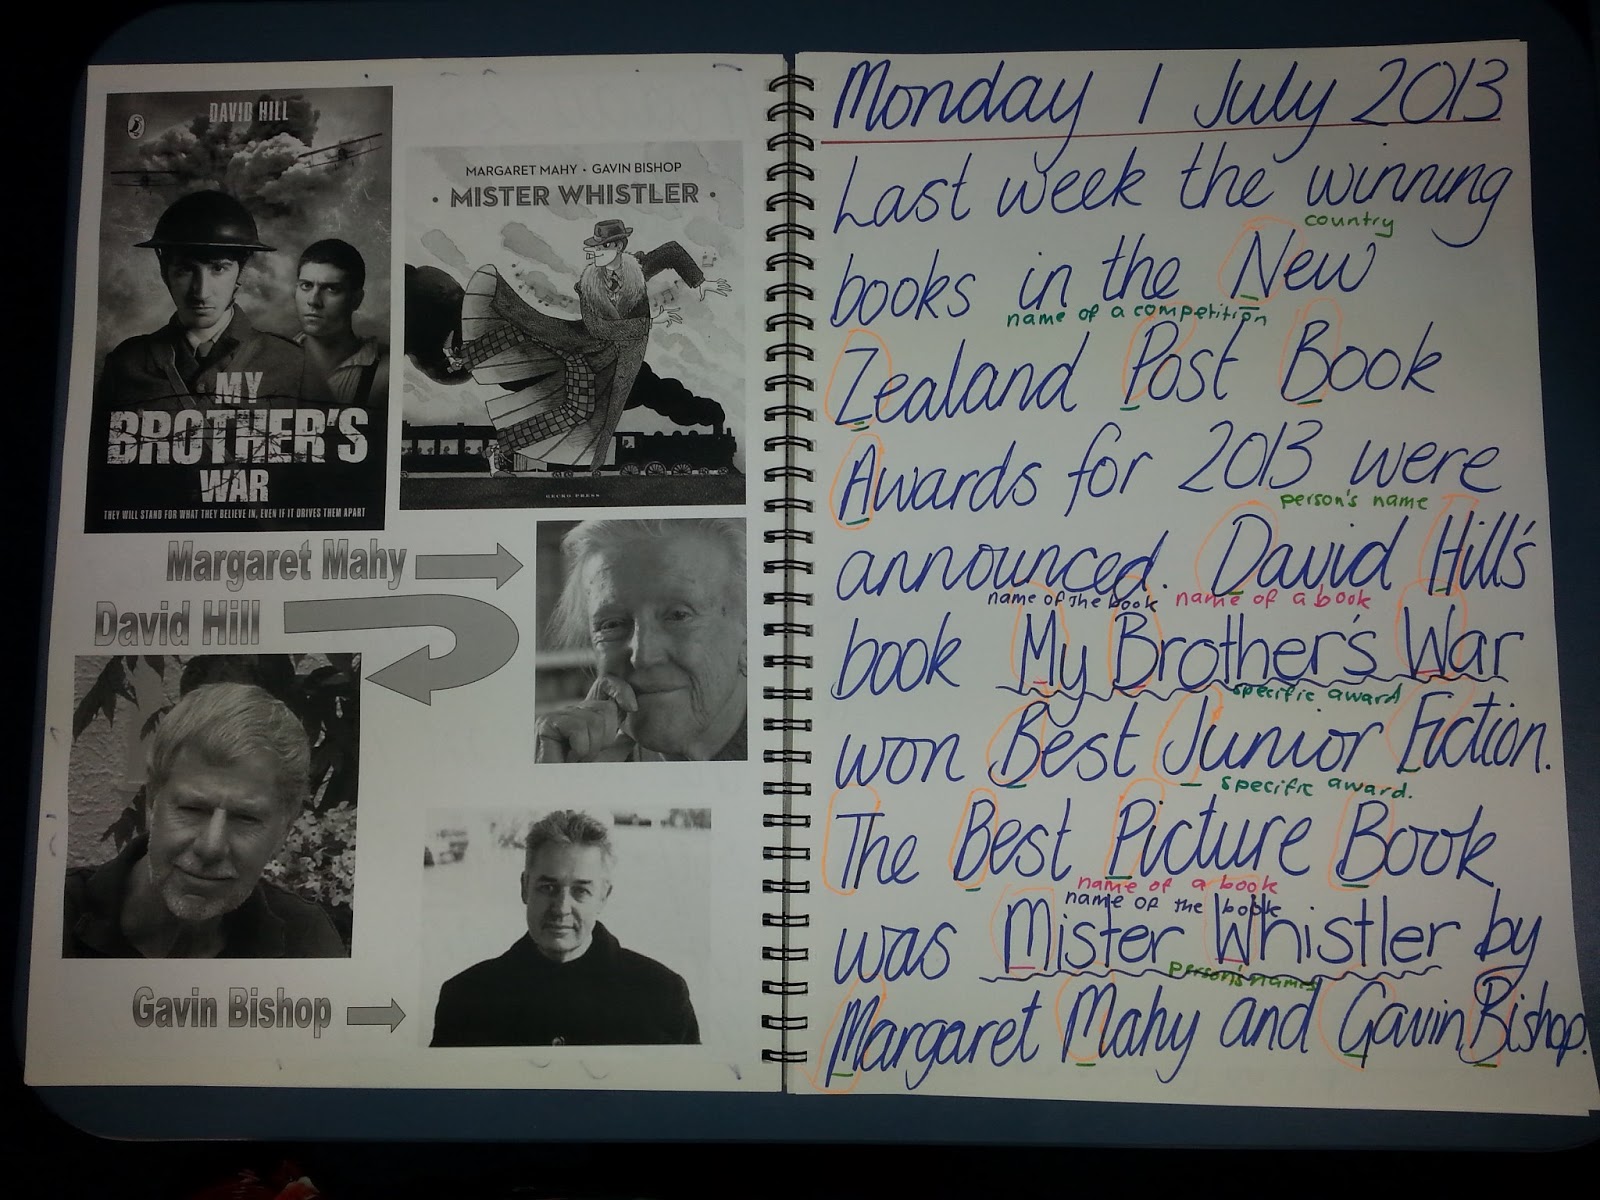 DAVID HILL
MY
BROTHER'S
WAR
THEY WILL STAND FOR WHAT THEY BELIEVE IN, EVEN IF IT DRIVES THEM APART
MARGARET MAHY · GAVIN BISHOP
· MISTER WHISTLER ·
GECKO PRESS
Margaret Mahy
David Hill
Gavin Bishop
Monday 1 July 2013
Last week the winning
country
books in the New
name of a competition
Zealand Post Book
Awards for 2013 were
person's name
announced. David Hill's
name of the book name of a book
book My Brother's War
specific award
won Best Junior Fiction.
specific award.
The Best Picture Book
name of a book
name of the book
was Mister Whistler by
person's names
Margaret Mahy and Gavin Bishop.